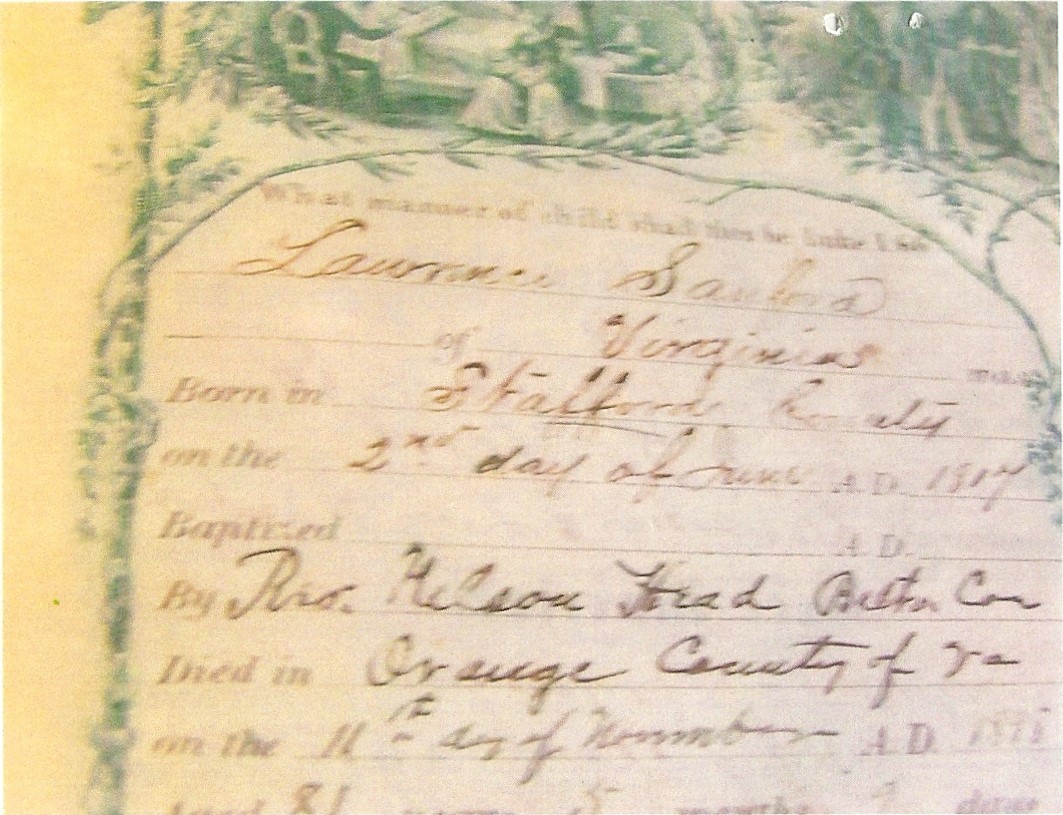 What manner of child shall this be Luke 1.66
Lawrence Sanford
of Virginia was
Born in Stafford County
on the 2nd day of June A.D. 1817
Baptized A.D.
By Rev. Nelson Head
Died in Orange County of Va
on the 11th day of November A.D. 1898
Aged 81 years 5 months 9 days